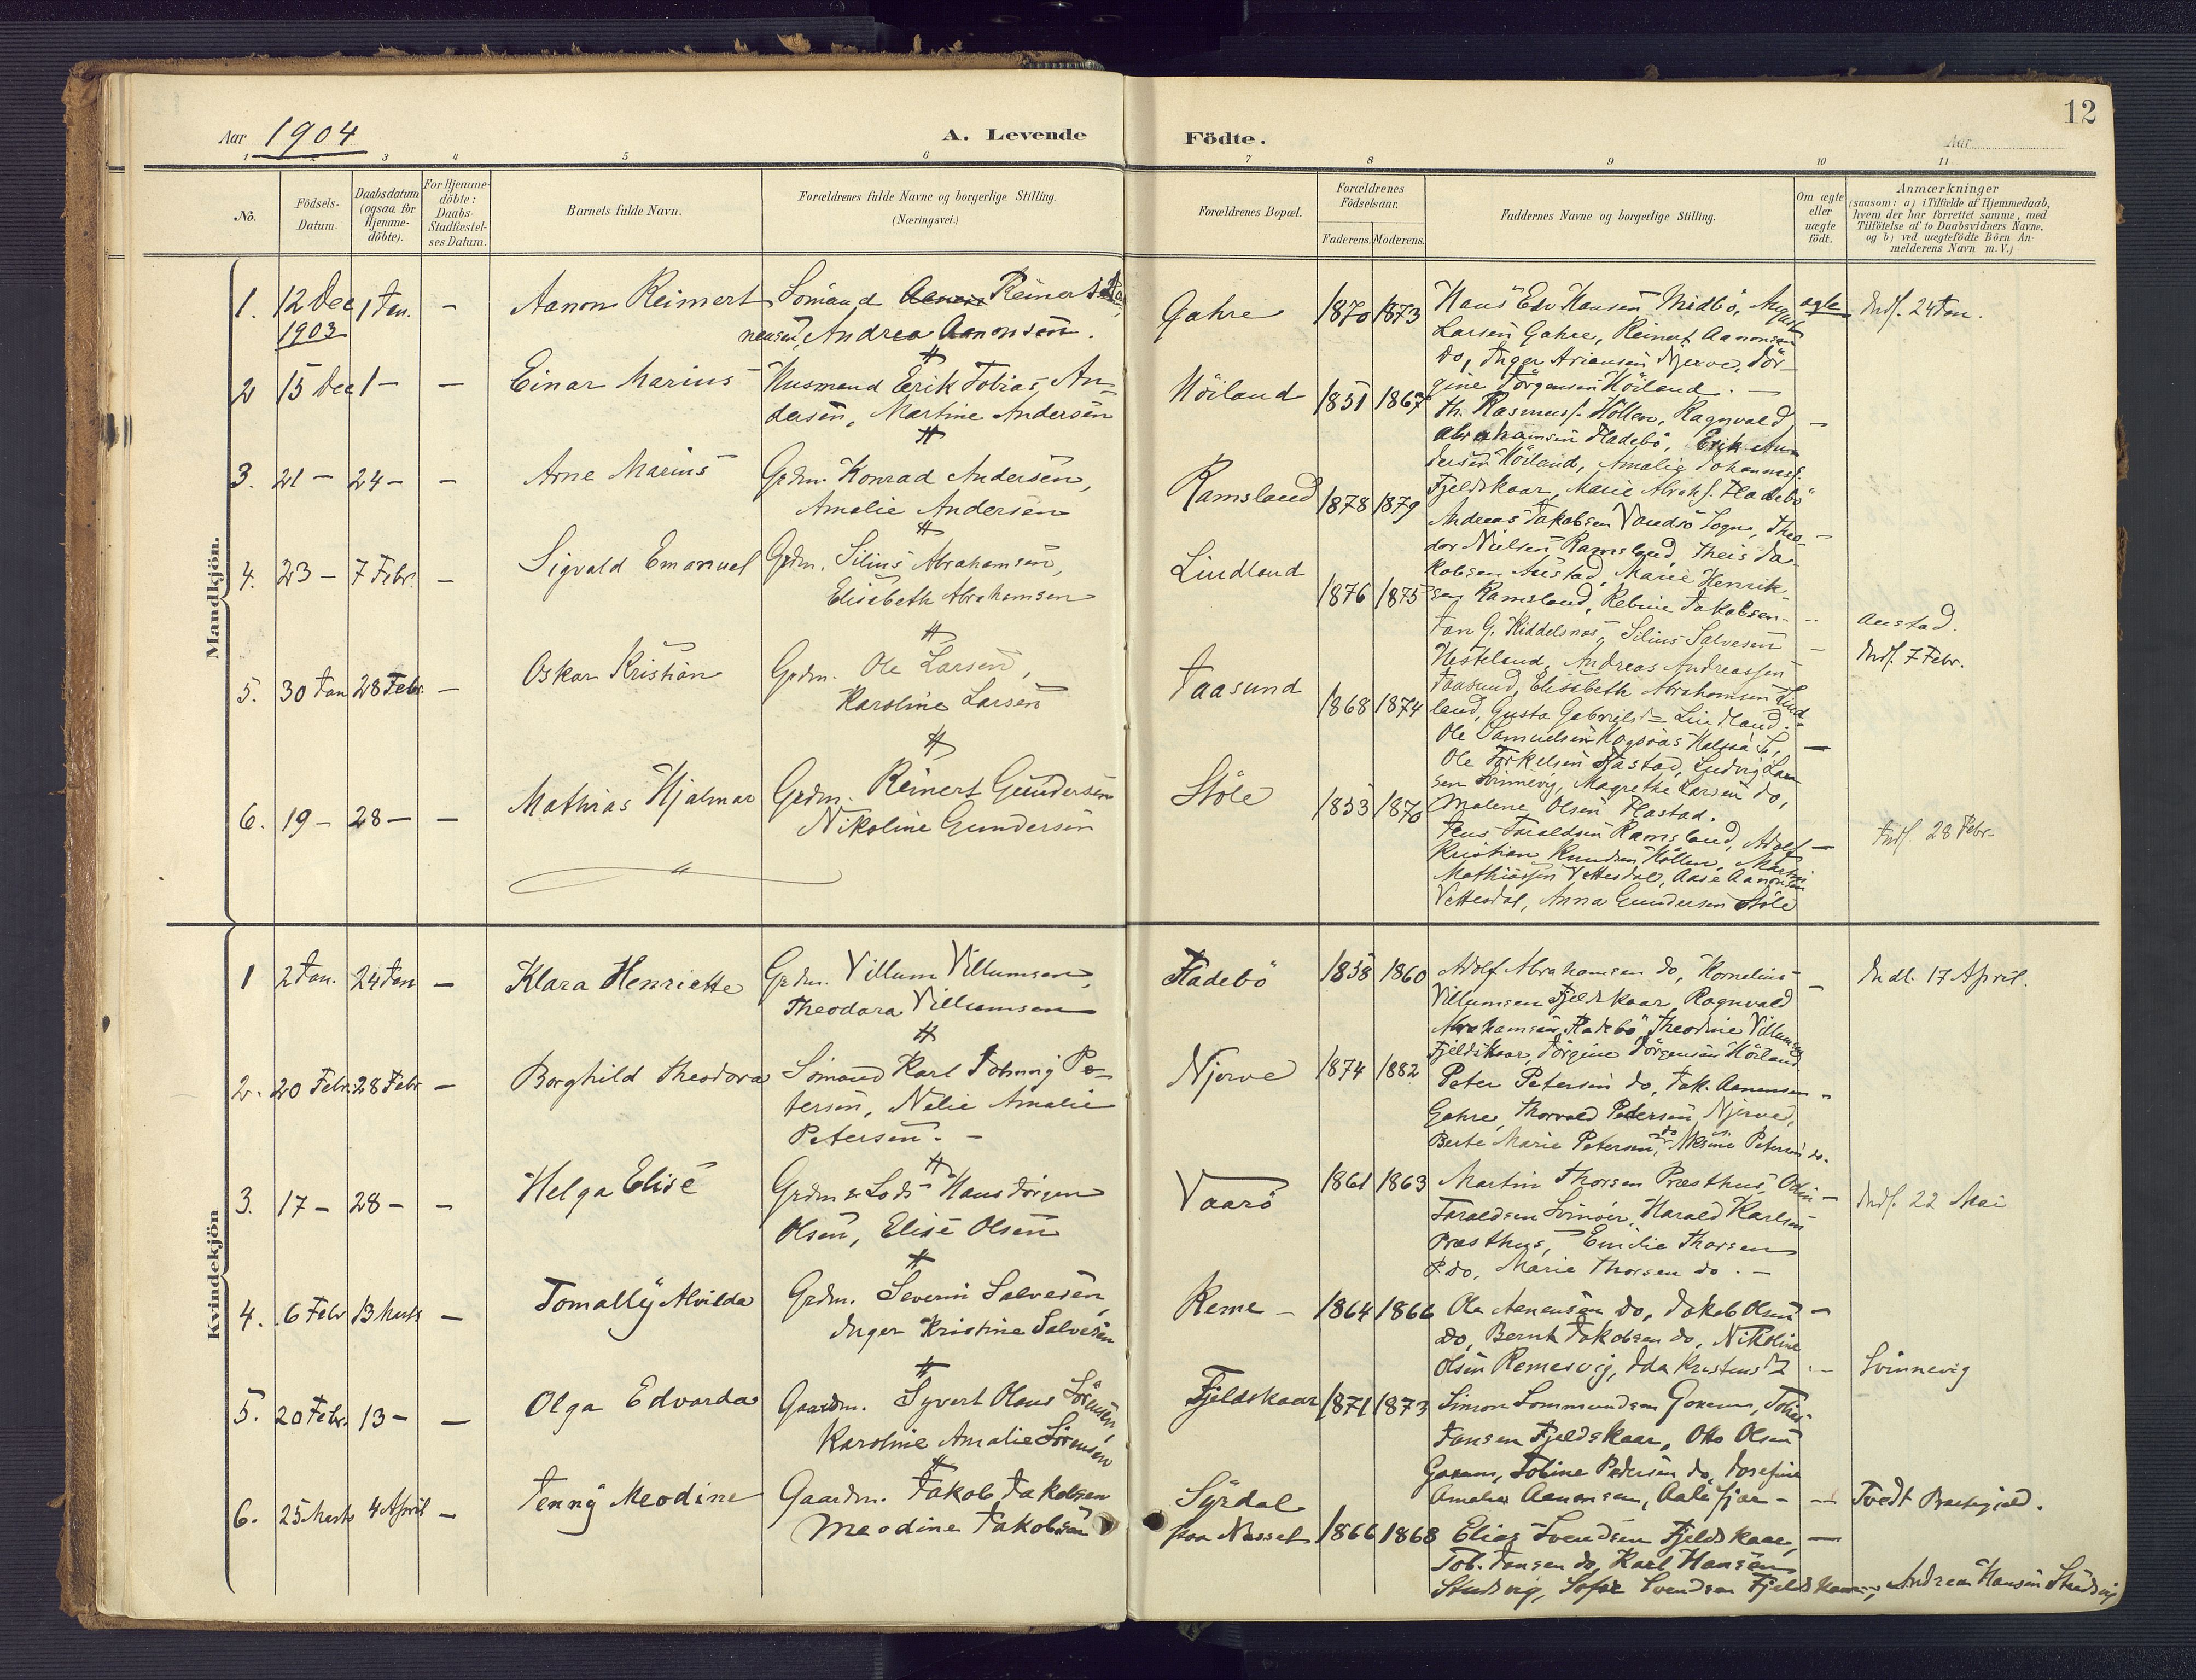 12
Aar 1904
A. Levende
Födte.
Aar
1 2 3 4 5 6 7 8 9 10 11
No.
Födsels-
Datum.
Daabsdatum
(ogsaa for
Hjemme-
döbte).
For Hjemme-
döbte:
Daabs-
Stadfæstel-
ses Datum.
Barnets fulde Navn.
Forældrenes fulde Navne og borgerlige Stilling.
(Næringsvei.)
Forældrenes Bopæl.
Forældrenes
Födselsaar.
Faderens. Moderens.
Faddernes Navne og borgerlige Stilling.
Om ægte
eller
uægte
födt.
Anmærkninger
(saasom: a) i Tilfælde af Hjemmedaab,
hvem der har forrettet samme, med
Tilföielse af to Daabsvidners Navne,
og b) ved uægtefödte Börn An-
melderens Navn m. V.)
Mandkjön.
1. 12 Dec 1 Jan. - Aanon Reinert Sömand Reinert Aa-
1903
nensen, Andrea Aanonsen.
Gahre 1870 1873
Hans Edv Hansen Midbö, August
Larsen Gahre, Reinert Aanonsen
do, Inger Ariansen Njerve, Jör-
gine Jörgensen Höiland. -
ægte
Indf. 24 Jan.
2 15 Dec 1 - - Einar Marius Husmand Erik Tobias An-
dersen, Martine Andersen
Höiland 1851 1867
Th. Rasmuss. Höllen, Ragnvald
Abrahamsen Fladebö, Erik An-
dersen Höiland, Amalie Johannes.
Fjeldskaar, Marie Abrahs. Fladebö
3. 21 - 24 - - Arne Marius Grdm. Konrad Andersen,
Amalie Andersen
Ramsland 1878 1879
Andreas Jakobsen Vandsö Sogn, Theo-
dor Nielsen Ramsland, Theis Ja-
kobsen Austad, Marie Henrik-
sen Ramsland, Rebine Jakobsen -
Austad.
4. 23 - 7 Febr. - Sigvald Emanuel Grdm. Silius Abrahamsen,
Elisabeth Abrahamsen
Lindland 1876 1875
Jan G. Kiddelsnes, Silius Salvesen
Hesteland, Andreas Andreassen
Jaasund, Elisabeth Abrahamsen Lind-
land, Gusta Gabriels Lindland.
Indf. 7 Febr.
5. 30 Jan 28 Febr. - Oskar Kristian Grdm. Ole Larsen,
Karoline Larsen
Jaasund 1868 1874
Ole Samuelsen Halsaa S.,
Ole Torkelsen Ludvig Lar
sen Svinnevig, Magrethe Larsen do,
Malene Olsen
6. 19 - 28 - - Mathias Hjalmar Grdm. Reinert Gundersen
Nikoline Gundersen
Stöle 1853 1870
Jens Taraldsen Ramsland, Adolf
Kristian Knudsen Höllen, Martin
Mathiassen Vettesdal, Aase Aanonsen
Vettesdal, Anna Gundersen Stöle
Indf. 28 Febr.
Kvindekjön
1 2 Jan. 24 Jan - Klara Henriette Grdm. Villum Villumsen,
Theodora Villumsen
Fladebö 1858 1860
Adolf Abrahamsen do, Kornelius
Villumsen Fjeldskaar, Ragnvald
Abrahamsen Fladebö, Theodine Villumsen
Fjeldskaar, Jörgine Jörgensen Höiland
Indl. 17 April.
2. 20 Febr. 28 Febr - Borghild Theodora Sömand Karl Johnny Pe-
tersen, Nelie Amalie
Petersen. -
Njerve 1874 1882
Peter Petersen do, Jak. Aanensen
Gahre, Thorvald Pedersen Njerve,
Berte Marie Petersen do, Aksine Petersen do.
3. 17 - 28 - - Helga Elise Grdm & Lods Hans Jörgen
Olsen, Elise Olsen
Vaarö 1861 1863
Martin Thorsen Præsthus, Odin
Taraldsen Svinöer, Harald Karlsen
Præsthus, Emilie Thorsen
do, Marie Thorsen do. -
Indf. 22 Mai
4. 6 Febr 13 Marts - Tomally Alvilda Grdm. Severin Salvesen,
Inger Kristine Salvesen
Reme - 1864 1866
Ole Aanensen do, Jakob Olsen
do, Bernt Jakobsen do, Nikoline
Olsen Remesvig, Ida Kristens
Svinnevig
5. 20 Febr. 13 - - Olga Edvarda Gaardm. Syvert Olaus Sörensen,
Karoline Amalie Sörensen
Fjeldskaar 1871 1873
Simon Sommundsen Tobias
Jansen Fjeldskaar, Otto Olsen
Tobine Pedersen do, Josefine
Amalie Aanonsen,
Tvedt Præstegjeld.
6. 25 Marts 4 April - Jenny Meodine Gaardm. Jakob Jakobsen
Meodine Jakobsen
Syrdal
paa Nesset 1866 1868
Elias Svendsen Fjeldskaar,
Tob. Jansen do, Karl Hansen
Studvig, Sofie Svendsen Fjeldskaar, Andrea Hansen Studvig